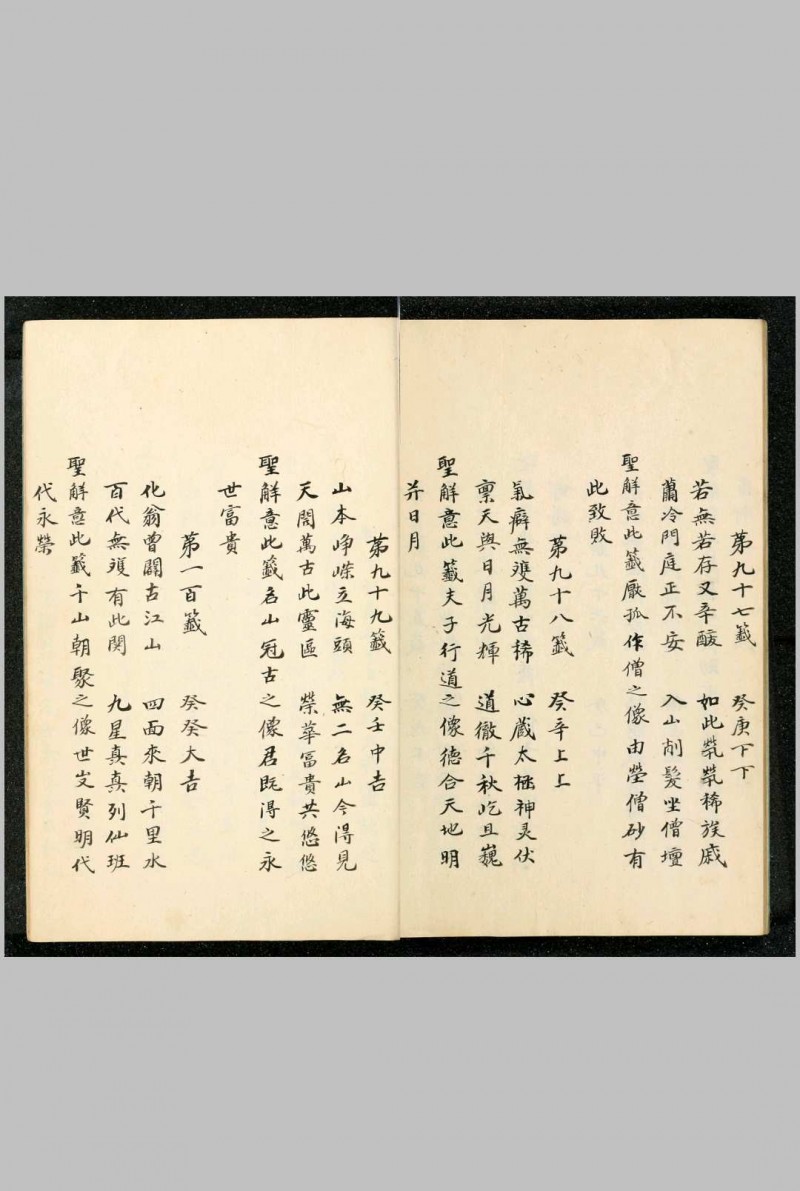 第九十七籤　癸庚下下
若無若存又辛酸　如此煢煢稀族戚
蕭冷門庭正不安　入山削髮坐僧壇
聖解意此籤厭孤作僧之像由塋僧砂有
此致敗
第九十八籤　癸辛上上
氣癖無雙萬古稀　心藏太極神灵伏
禀天與日月光輝　道徹千秋屹且巍
聖解意此籤夫子行道之像德合天地明
并日月
第九十九籤　癸壬中吉
山本崢嶸立海頭　無二名山今得見
天閣萬古此靈區　榮華冨貴共悠悠
聖解意此籤名山冠古之像君既得之永
世富貴
第一百籤　癸癸大吉
化翁曾闢古江山　四面來朝千里水
百代無雙有此関　九星真真列仙班
聖解意此籤千山朝聚之像世文賢明代
代永榮